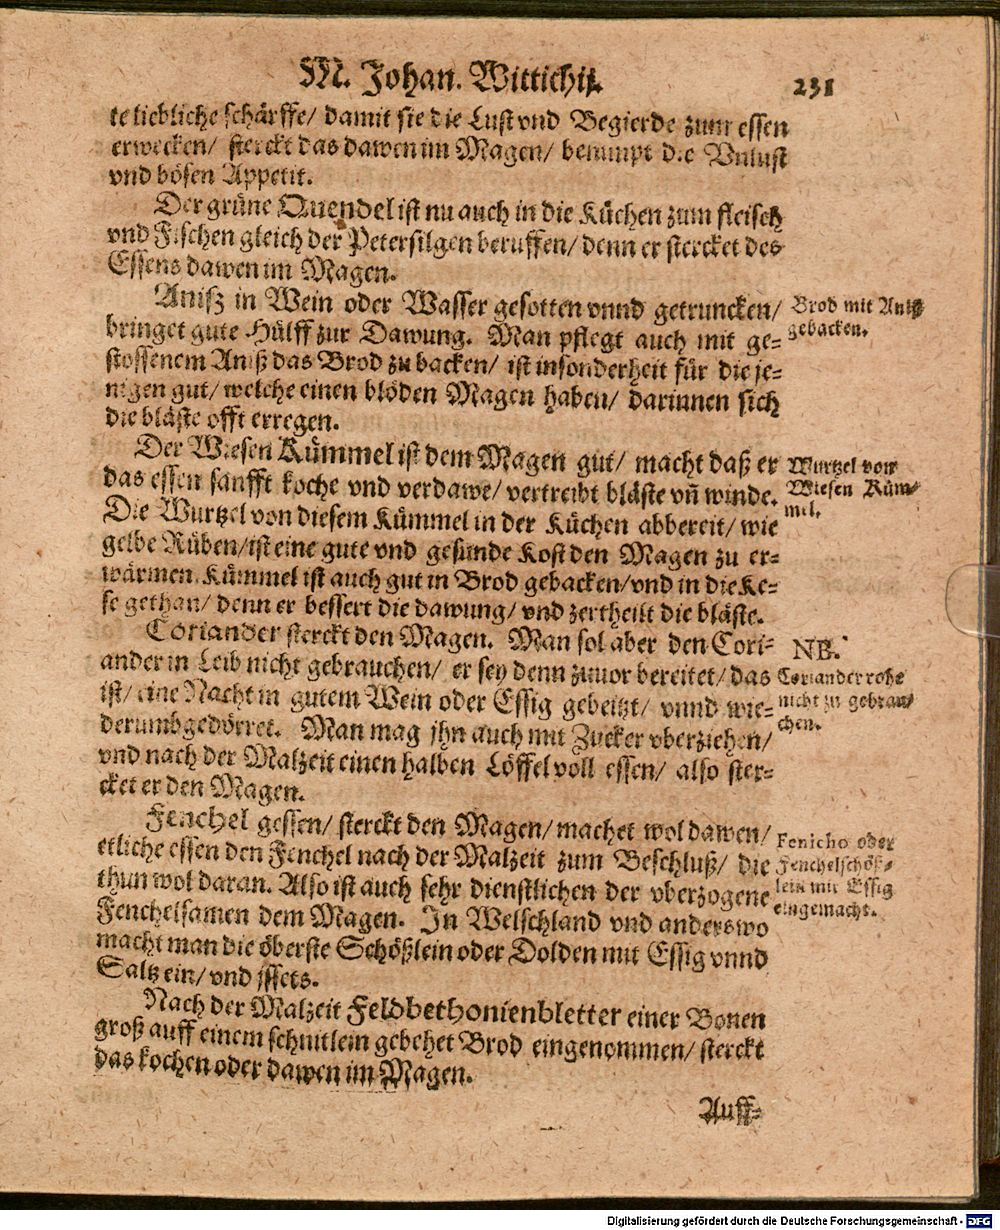 M. Johan. Wittichij.
231
te liebliche schärffe/ damit sie die Lust vnd Begierde zum essen
erwecken/ sterckt das dawen im Magen/ benimpt die Vnlust
vnd bösen Appetit.
Der grüne Quendel ist nu auch in die Küchen zum fleisch
vnd Fischen gleich der Petersilgen beruffen/ denn er stercket des
Essens dawen im Magen.
Anisz in Wein oder Wasser gesotten vnnd getruncken/
bringet gute Hülff zur Dawung. Man pflegt auch mit ge-
stossenem Aniß das Brod zu backen/ ist insonderheit für die je-
nigen gut/ welche einen blöden Magen haben/ darinnen sich
die bläste offt erregen.
Brod mit Aniß
gebacken.
Der Wiesen Kümmel ist dem Magen gut/ macht daß er
das essen sanfft koche vnd verdawe/ vertreibt bläste vñ winde.
Die Wurtzel von diesem Kümmel in der Küchen abbereit/ wie
gelbe Rüben/ ist eine gute vnd gesunde Kost den Magen zu er-
wärmen. Kümmel ist auch gut in Brod gebacken/ vnd in die Ke-
se gethan/ denn er bessert die dawung/ vnd zertheilt die bläste.
Wurtzel von
Wiesen Küm-
mel.
Coriander sterckt den Magen. Man sol aber den Cori-
ander in Leib nicht gebrauchen/ er sey denn zuuor bereitet/ das
ist/ eine Nacht in gutem Wein oder Essig gebeitzt/ vnnd wie-
derumb gedörret. Man mag jhn auch mit Zucker vberziehen/
vnd nach der Malzeit einen halben Löffel voll essen/ also ster-
cket er den Magen.
NB.
Coriander rohe
nicht zu gebrau-
chen.
Fenchel gessen/ sterckt den Magen/ machet wol dawen/
etliche essen den Fenchel nach der Malzeit zum Beschluß/ die
thun wol daran. Also ist auch sehr dienstlichen der vberzogene
Fenchelsamen dem Magen. In Welschland vnd anderswo
macht man die öberste Schößlein oder Dolden mit Essig vnnd
Saltz ein/ vnd jssets.
Fenicho oder
Fenchelschöß-
lein mit Essig
eingemacht.
Nach der Malzeit Feldbethonienbletter einer Bonen
groß auff einem schnitlein gebehet Brod eingenommen/ sterckt
das kochen oder dawen im Magen.
Auff-
Digitalisierung gefördert durch die Deutsche Forschungsgemeinschaft - DFG